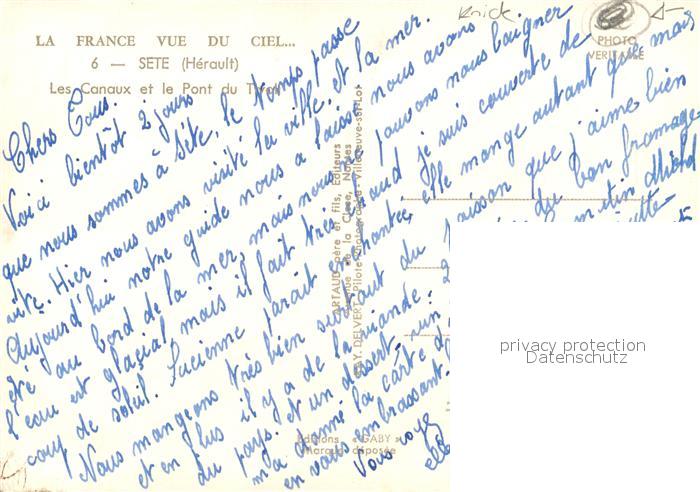 Knick
LA FRANCE VUE DU CIEL...
6 — SETE (Hérault)
Les Canaux et le Pont du Tivoli
PHOTO
VERITABLE
ARTAUD père et fils, Editeurs
rue de la Clisse, Nantes
RAY. DELVERT, Pilote-Photographe - Villeneuve-sur-Lot
Editions « GABY »
Marque déposée
Chers Tous.
Voici bientôt 2 jours
que nous sommes à Sète, le temps passe
vite. Hier nous avons visité la ville, et la mer.
Aujourd'hui notre guide nous a laissé nous avons
été au bord de la mer, mais nous ne pouvons nous baigner
l'eau est glaçial mais il fait très chaud je suis couverte de
coup de soleil. Lucienne parait enchantée, elle mange autant que mais
Nous mangeons très bien surtout du poisson que j'aime bien
et en plus il y a de la viande. 2 du bon fromage
du pays. et un dessert. un matin
m'a donné la carte d
en vous embrassant.
Vous voyez
elle
privacy protection
Datenschutz